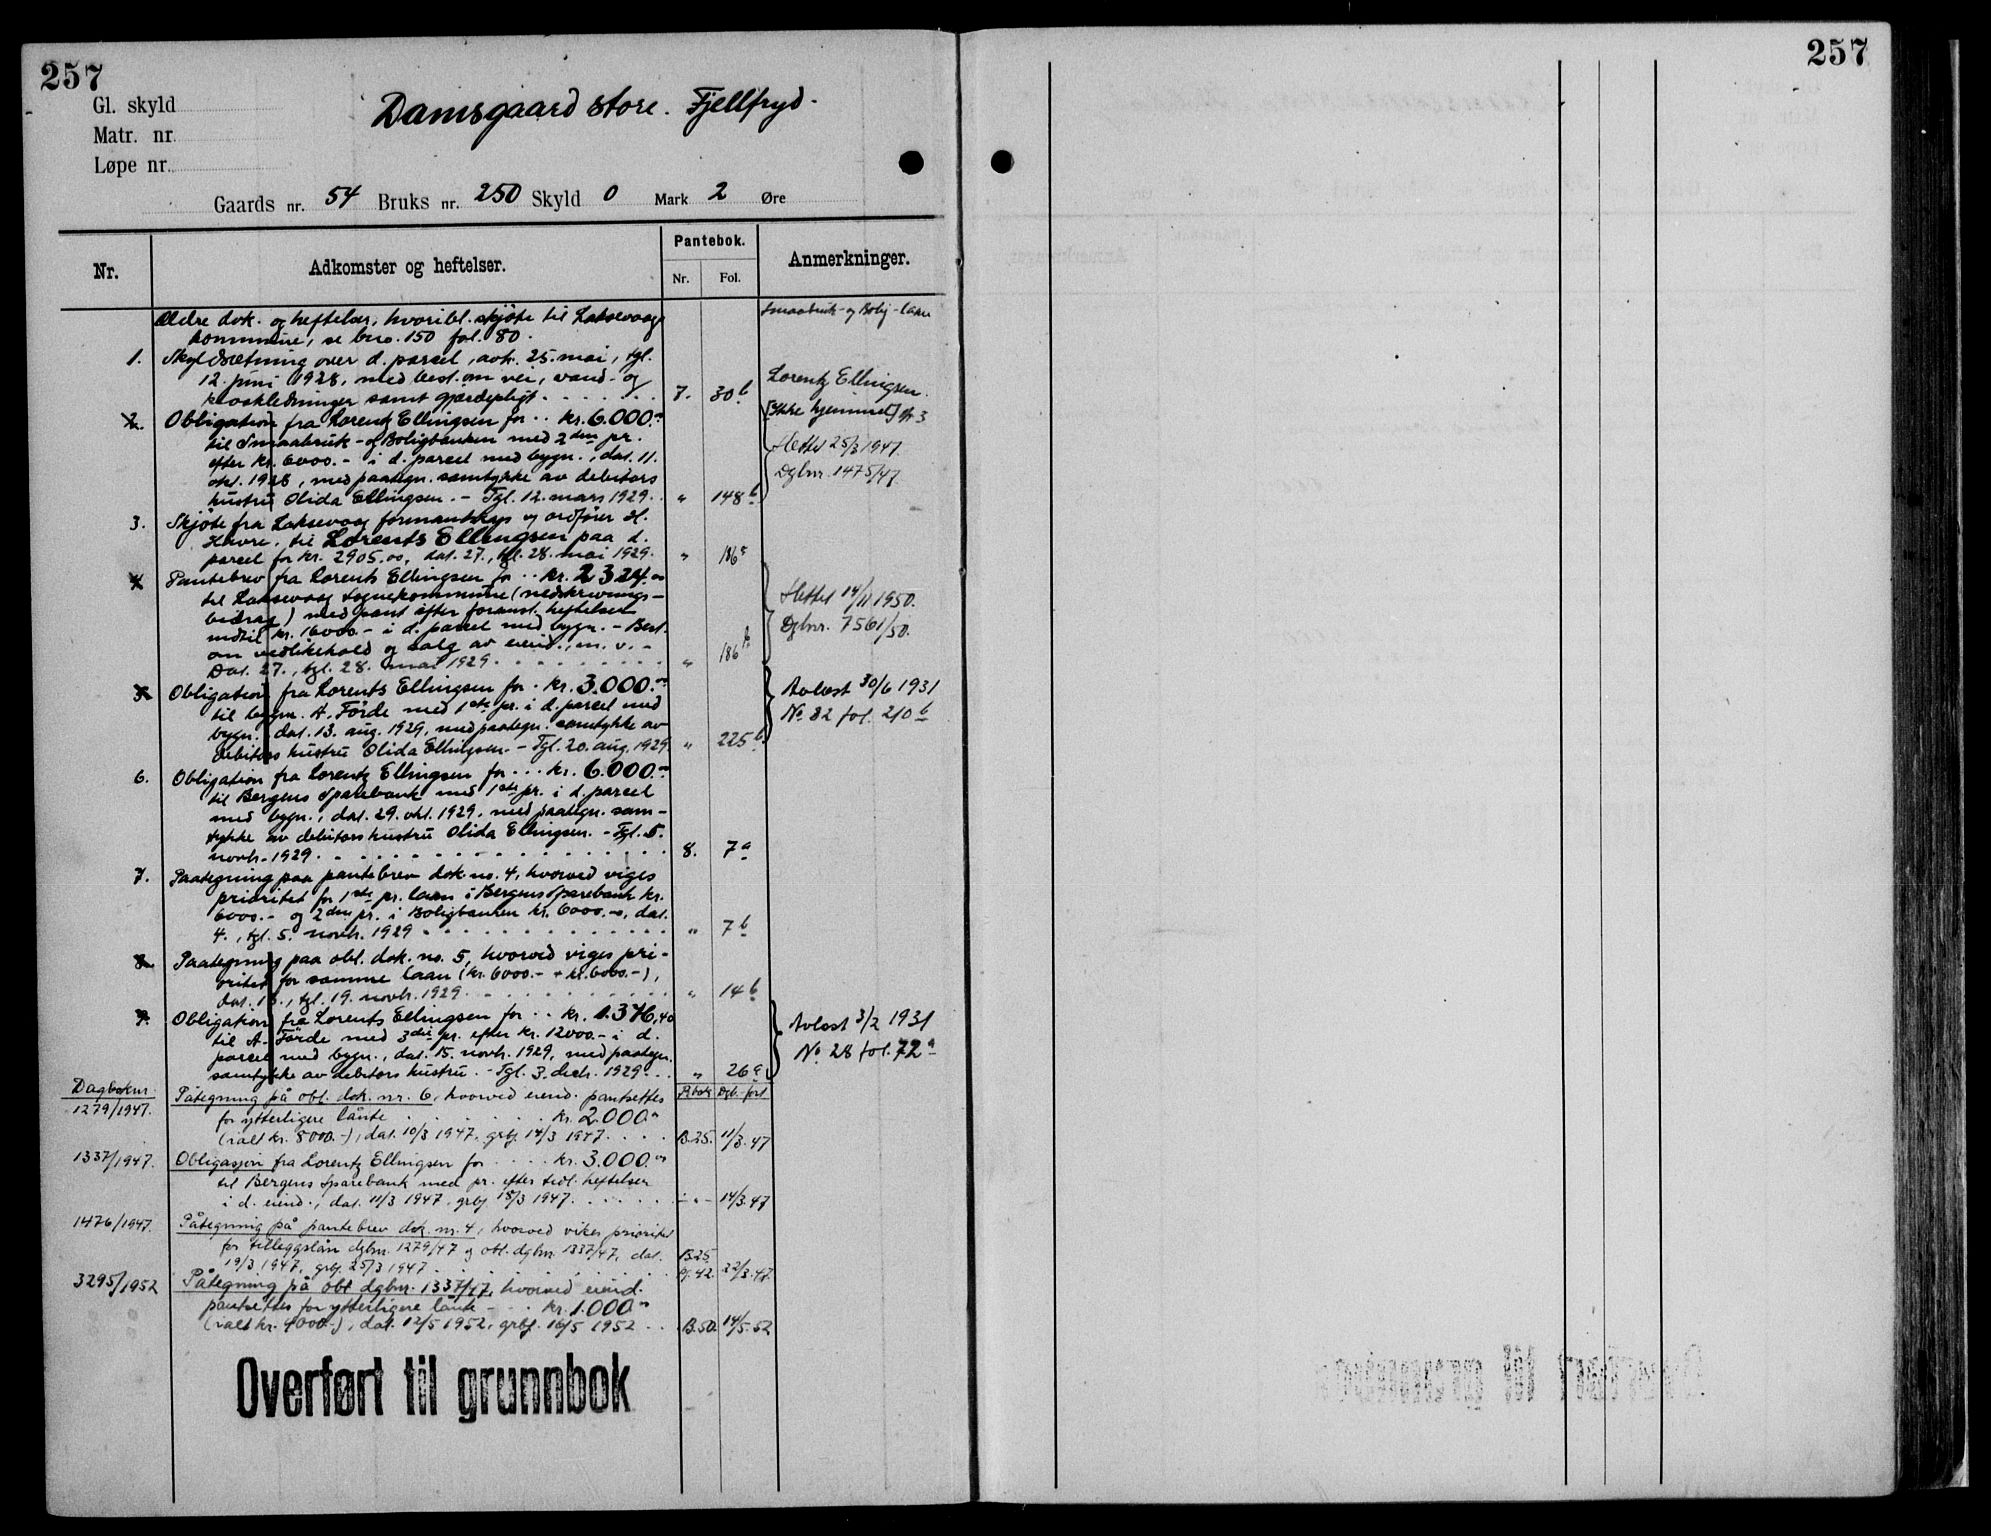 257
257
Gl. skyld
Matr. nr.
Løpe nr.
Damsgaard store. Fjellfryd.
Gaards nr. 54 Bruks nr. 250 Skyld 0 Mark 2 Øre
Nr. Adkomster og heftelser. Pantebok. Anmerkninger.
Nr. Fol.
Ældre dok. og heftelser, hvoribl. skjøte til Laksevaag
kommune, se bno. 150 fol. 80.
Smaabruk- og Bolig-laan
1. Skyldsætning over d. parcel, avh. 25. mai, tgl.
12. juni 1928, med best. om vei, vand- og
kloakledninger samt gjærdepligt 7. 30 b
Lorentz Ellingsen.
[Ikke hjemmel] Nr 3
2. Obligation fra Lorentz Ellingsen for kr. 6.000.-
til Smaabruk- og Boligbanken med 2den pr.
efter kr. 6000.- i d. parcel med bygn., dat. 11.
okt. 1928, med paategn. samtykke av debitors
hustru Olida Ellingsen. - Tgl. 12. mars 1929. " 148 b
Slettet 25/3 1947.
Dgbnr. 1475/47.
3. Skjøte fra Laksevaag formannskap og ordfører H.
Havre. til Lorents Ellingsen paa d.
parcel for kr. 2905.00, dat. 27., tgl. 28. mai 1929. " 186 a
4. Pantebrev fra Lorents Ellingsen for kr. 2324.00
til Laksevaag sognekommune (nedskrivnings-
bidrag) med pant efter foranst. heftelser
indtil kr. 16000.- i d. parcel med bygn. - Best.
om vedlikehold og salg av eiend., m. v. -
Dat. 27., tgl. 28. mai 1929 " 186 b
Slettet 14/11 1950.
Dgbnr. 7561/50.
5. Obligation fra Lorents Ellingsen for kr. 3.000.00
til bygm. A. Førde med 1ste pr. i d. parcel med
bygn. dat. 13. aug. 1929, med paategn. samtykke av
debitors hustru Olida Ellingsen. - Tgl. 20. aug. 1929 " 225 b
Avlæst 30/6 1931
No. 32 fol. 210 b
6. Obligation fra Lorentz Ellingsen for kr. 6.000.-
til Bergens Sparebank med 1ste pr. i d. parcel
med bygn., dat. 29. okt. 1929, med paategn. sam-
tykke av debitors hustru Olida Ellingsen. - Tgl. 5.
novbr. 1929. 8. 7 a
7. Paategning paa pantebrev dok. no. 4, hvorved viges
prioritet for 1ste pr. laan i Bergens Sparebank kr.
6000.- og 2den pr. i Boligbanken kr. 6000.-, dat.
4., tgl. 5. novbr. 1929 " 7 b
8. Paategning paa obl. dok. no. 5, hvorved viges pri-
oritet for samme laan (kr. 6000.- + kr. 6000.-),
tgl. 19. novbr. 1929 " 14 b
9. Obligation fra Lorents Ellingsen for kr. 1.376,40
til A. Førde med 3die pr. efter kr. 12000.- i d.
parcel med bygn., dat. 15. novbr. 1929, med paategn.
samtykke av debitors hustru. - Tgl. 3. decbr. 1929 " 26 a
Avlæst 3/2 1931
No. 28 fol. 72 a
Dagboknr. P.bok Dgb. ført
1279/1947. Påtegning på obl. dok. nr. 6, hvorved eiend. pantsettes
for ytterligere lånte kr. 2.000.-
(ialt kr. 8000.-), dat. 10/3 1947, grbf. 14/3 1947. B.25. 11/3.47
1337/1947. Obligasjon fra Lorentz Ellingsen for kr. 3.000.00
til Bergens Sparebank med pr. efter tidl. heftelser
i d. eiend., dat. 11/3 1947, grbf 18/3 1947. - " - 14/3.47
1476/1947. Påtegning på pantebrev dok. nr. 4, hvorved vikes prioritet
for tilleggslån dgbnr. 1279/47 og obl. dgbnr. 1337/47, dat.
19/3 1947, grbf. 25/3 1947 B.25 22/3.47
3295/1952 Påtegning på obl. dgbnr. 1337/47, hvorved eiend.
pantsettes for ytterligere lånte kr. 1.000.-
(ialt kr. 4000.-), dat. 12/5 1952, grbf. 16/5 1952 B.50. 14/5.52
Overført til grunnbok